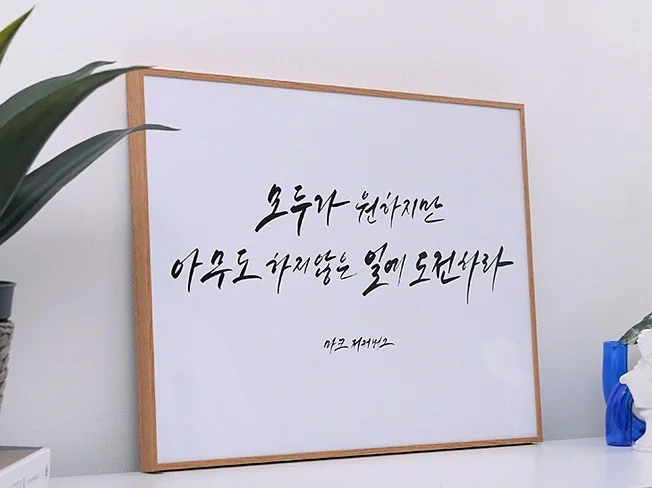 모두가 원하지만
아무도 하지않은 일에 도전하라
마크 저커버그